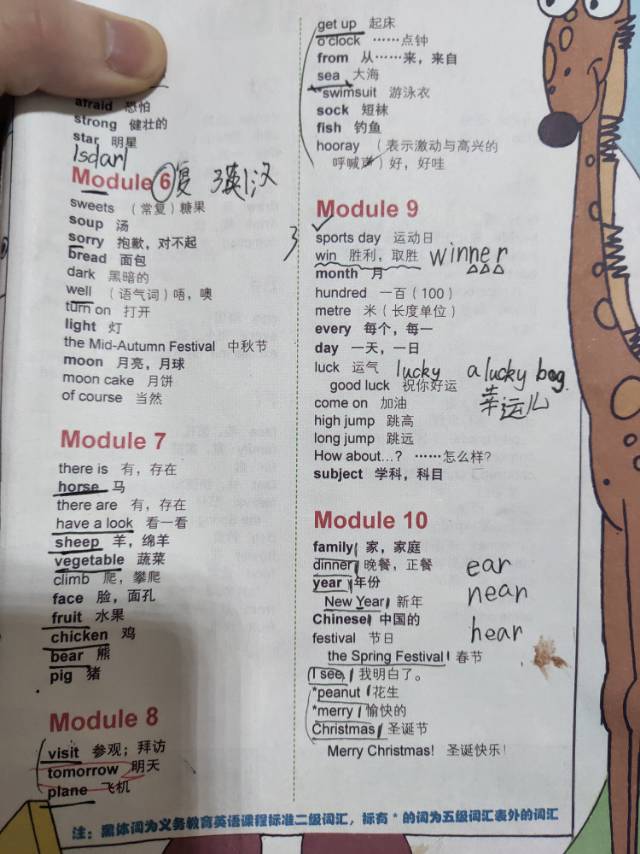 afraid 恐怕
strong 健壮的
star 明星
Isdarl
Module 6 复 3英1汉
sweets （常复）糖果
soup 汤
sorry 抱歉，对不起
bread 面包
dark 黑暗的
well （语气词）唔，噢
turn on 打开
light 灯
the Mid-Autumn Festival 中秋节
moon 月亮，月球
moon cake 月饼
of course 当然
Module 7
there is 有，存在
horse 马
there are 有，存在
have a look 看一看
sheep 羊，绵羊
vegetable 蔬菜
climb 爬，攀爬
face 脸，面孔
fruit 水果
chicken 鸡
bear 熊
pig 猪
Module 8
visit 参观；拜访
tomorrow 明天
plane 飞机
get up 起床
o'clock ……点钟
from 从……来，来自
sea 大海
swimsuit 游泳衣
sock 短袜
fish 钓鱼
hooray （表示激动与高兴的
呼喊声）好，好哇
Module 9
sports day 运动日
3 win 胜利，取胜 winner
month 月
hundred 一百（100）
metre 米（长度单位）
every 每个，每一
day 一天，一日
luck 运气 lucky a lucky bog.
good luck 祝你好运 幸运儿
come on 加油
high jump 跳高
long jump 跳远
How about...? ……怎么样?
subject 学科，科目
Module 10
family 家，家庭
dinner 晚餐，正餐 ear
year 年份
New Year 新年 near
Chinese 中国的
festival 节日 hear
the Spring Festival 春节
I see. 我明白了。
*peanut 花生
*merry 愉快的
Christmas 圣诞节
Merry Christmas! 圣诞快乐！
注：黑体词为义务教育英语课程标准二级词汇，标有 * 的词为五级词汇表外的词汇